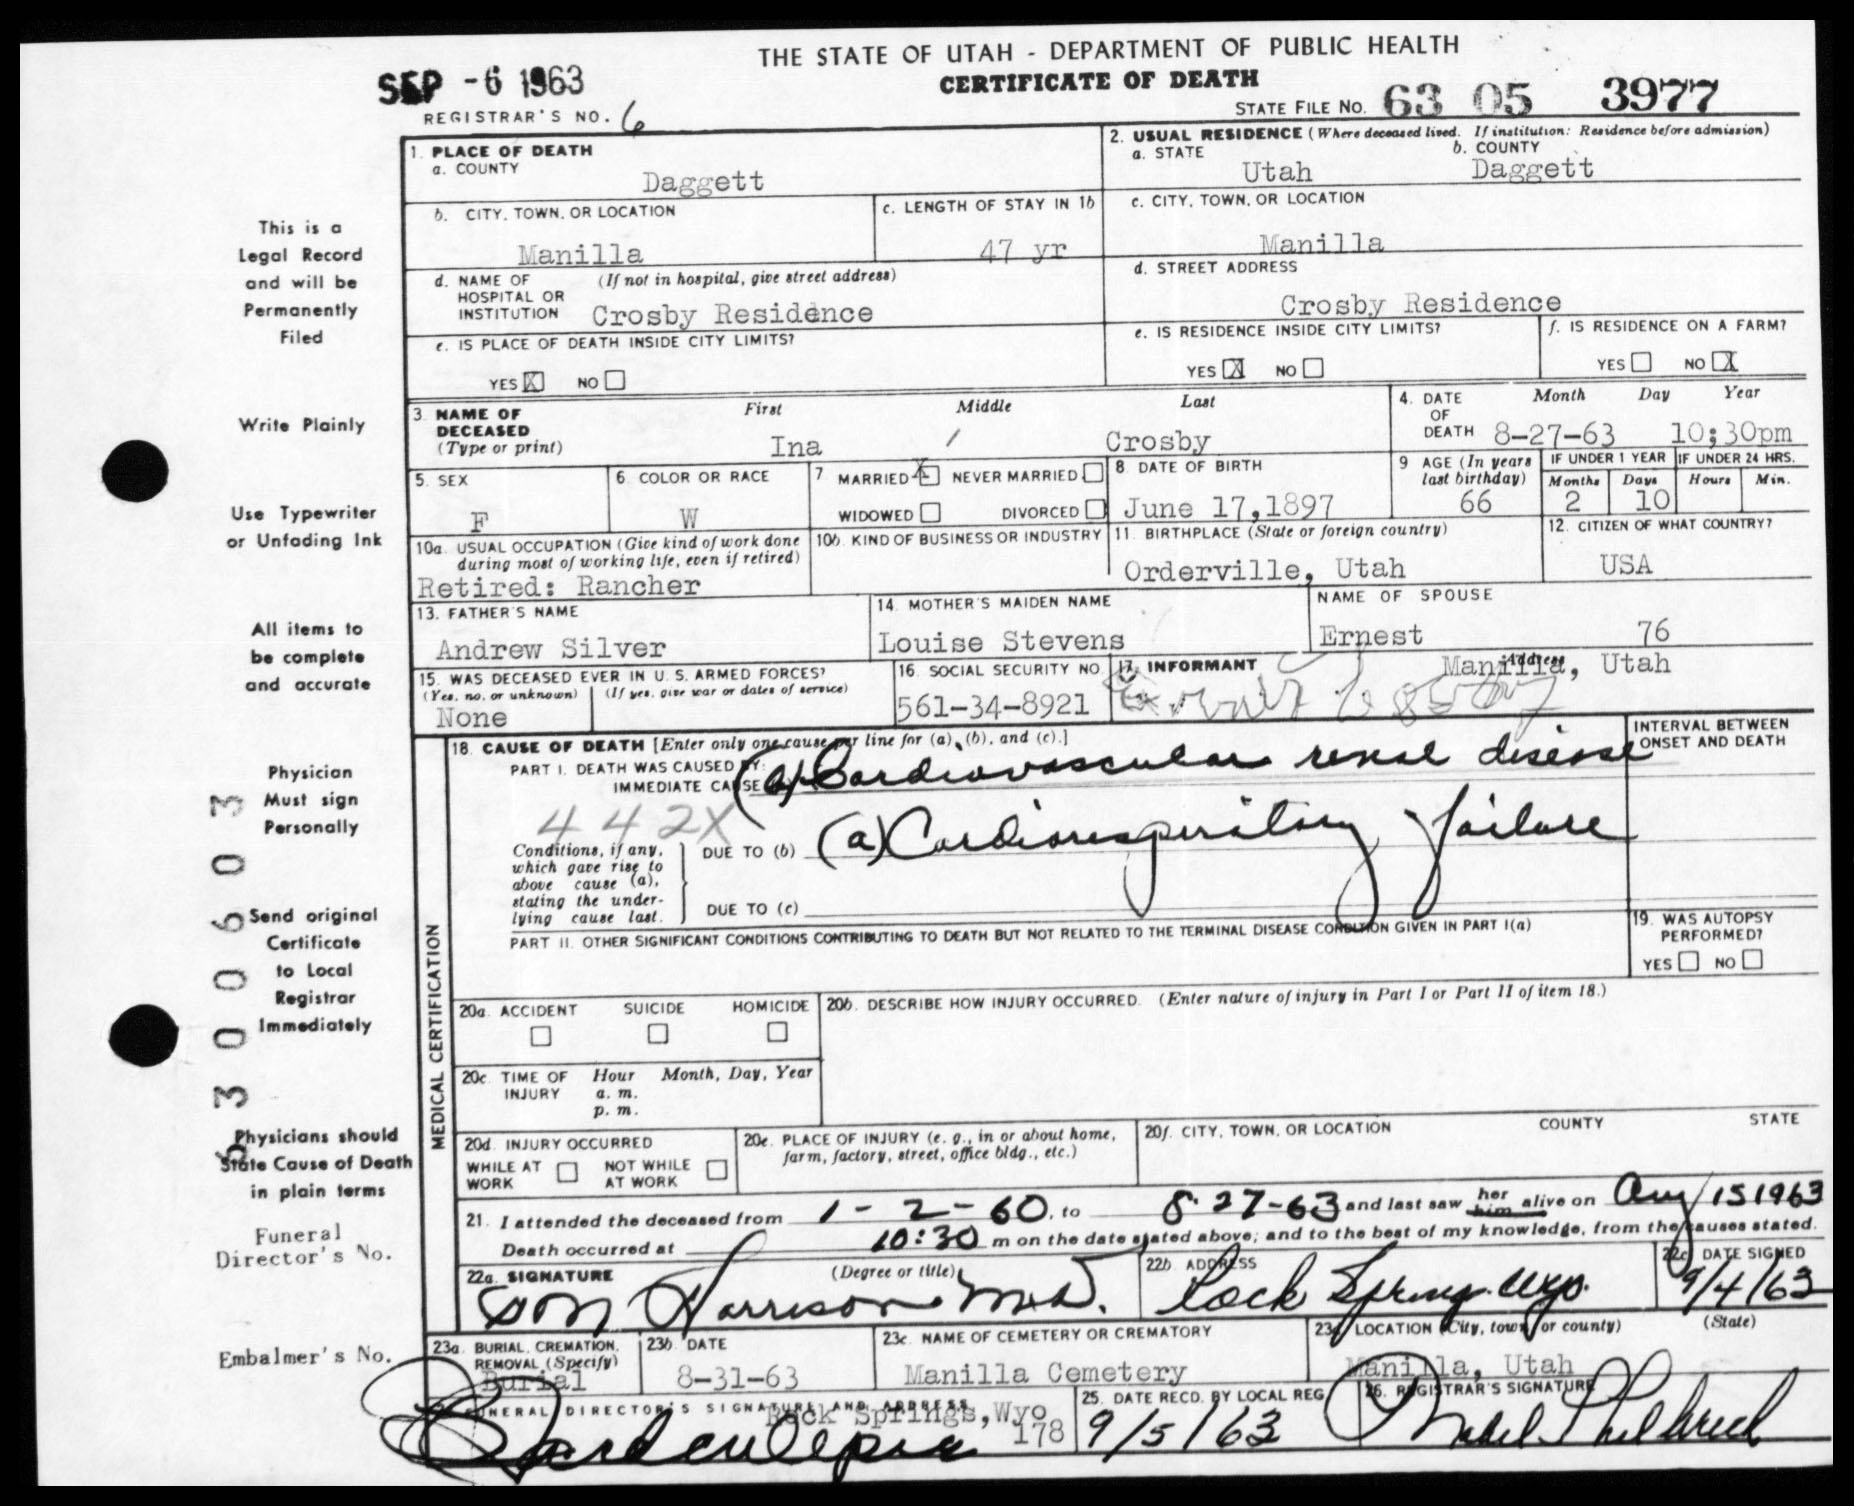 THE STATE OF UTAH - DEPARTMENT OF PUBLIC HEALTH
CERTIFICATE OF DEATH
SEP -6 1963
REGISTRAR'S NO. 6
STATE FILE NO. 63 05 3977
1. PLACE OF DEATH
a. COUNTY
Daggett
2. USUAL RESIDENCE (Where deceased lived. If institution: Residence before admission)
a. STATE
Utah
b. COUNTY
Daggett
b. CITY, TOWN, OR LOCATION
Manilla
c. LENGTH OF STAY IN 1b
47 yr
c. CITY, TOWN, OR LOCATION
Manilla
d. NAME OF HOSPITAL OR INSTITUTION
(If not in hospital, give street address)
Crosby Residence
d. STREET ADDRESS
Crosby Residence
e. IS PLACE OF DEATH INSIDE CITY LIMITS?
YES X NO
e. IS RESIDENCE INSIDE CITY LIMITS?
YES X NO
f. IS RESIDENCE ON A FARM?
YES NO X
3. NAME OF DECEASED
(Type or print)
First Middle Last
Ina / Crosby
4. DATE OF DEATH
Month Day Year
8-27-63 10;30pm
5. SEX
F
6. COLOR OR RACE
W
7. MARRIED X NEVER MARRIED
WIDOWED DIVORCED
8. DATE OF BIRTH
June 17,1897
9. AGE (In years last birthday)
66
IF UNDER 1 YEAR
Months Days
2 10
IF UNDER 24 HRS.
Hours Min.
10a. USUAL OCCUPATION (Give kind of work done during most of working life, even if retired)
Retired: Rancher
10b. KIND OF BUSINESS OR INDUSTRY
11. BIRTHPLACE (State or foreign country)
Orderville, Utah
12. CITIZEN OF WHAT COUNTRY?
USA
13. FATHER'S NAME
Andrew Silver
14. MOTHER'S MAIDEN NAME
Louise Stevens
NAME OF SPOUSE
Ernest 76
15. WAS DECEASED EVER IN U. S. ARMED FORCES?
(Yes, no, or unknown) (If yes, give war or dates of service)
None
16. SOCIAL SECURITY NO.
561-34-8921
17. INFORMANT
Ernest Crosby
Address
Manilla, Utah
MEDICAL CERTIFICATION
18. CAUSE OF DEATH [Enter only one cause per line for (a), (b), and (c).]
PART I. DEATH WAS CAUSED BY:
IMMEDIATE CAUSE
(b) Cardiovascular renal disease
INTERVAL BETWEEN ONSET AND DEATH
442X
Conditions, if any, which gave rise to above cause (a), stating the underlying cause last.
DUE TO (b)
(a) Cardiorespiratory failure
DUE TO (c)
PART II. OTHER SIGNIFICANT CONDITIONS CONTRIBUTING TO DEATH BUT NOT RELATED TO THE TERMINAL DISEASE CONDITION GIVEN IN PART I(a)
19. WAS AUTOPSY PERFORMED?
YES NO
20a. ACCIDENT SUICIDE HOMICIDE
20b. DESCRIBE HOW INJURY OCCURRED. (Enter nature of injury in Part I or Part II of item 18.)
20c. TIME OF INJURY
Hour Month, Day, Year
a. m.
p. m.
20d. INJURY OCCURRED
WHILE AT WORK NOT WHILE AT WORK
20e. PLACE OF INJURY (e. g., in or about home, farm, factory, street, office bldg., etc.)
20f. CITY, TOWN, OR LOCATION COUNTY STATE
21. I attended the deceased from 1-2-60, to 8-27-63 and last saw her him alive on Aug 15 1963
Death occurred at 10:30 m on the date stated above; and to the best of my knowledge, from the causes stated.
22a. SIGNATURE (Degree or title)
Harrison M.D.
22b. ADDRESS
Rock Springs Wyo.
22c. DATE SIGNED
9/4/63
23a. BURIAL, CREMATION, REMOVAL (Specify)
Burial
23b. DATE
8-31-63
23c. NAME OF CEMETERY OR CREMATORY
Manilla Cemetery
23d. LOCATION (City, town, or county) (State)
Manilla, Utah
FUNERAL DIRECTOR'S SIGNATURE AND ADDRESS
Rock Springs, Wyo
178
25. DATE RECD. BY LOCAL REG.
9/5/63
26. REGISTRAR'S SIGNATURE
Mabel Philbrick
This is a
Legal Record
and will be
Permanently
Filed
Write Plainly
Use Typewriter
or Unfading Ink
All items to
be complete
and accurate
Physician
Must sign
Personally
Send original
Certificate
to Local
Registrar
Immediately
Physicians should
State Cause of Death
in plain terms
Funeral
Director's No.
Embalmer's No.